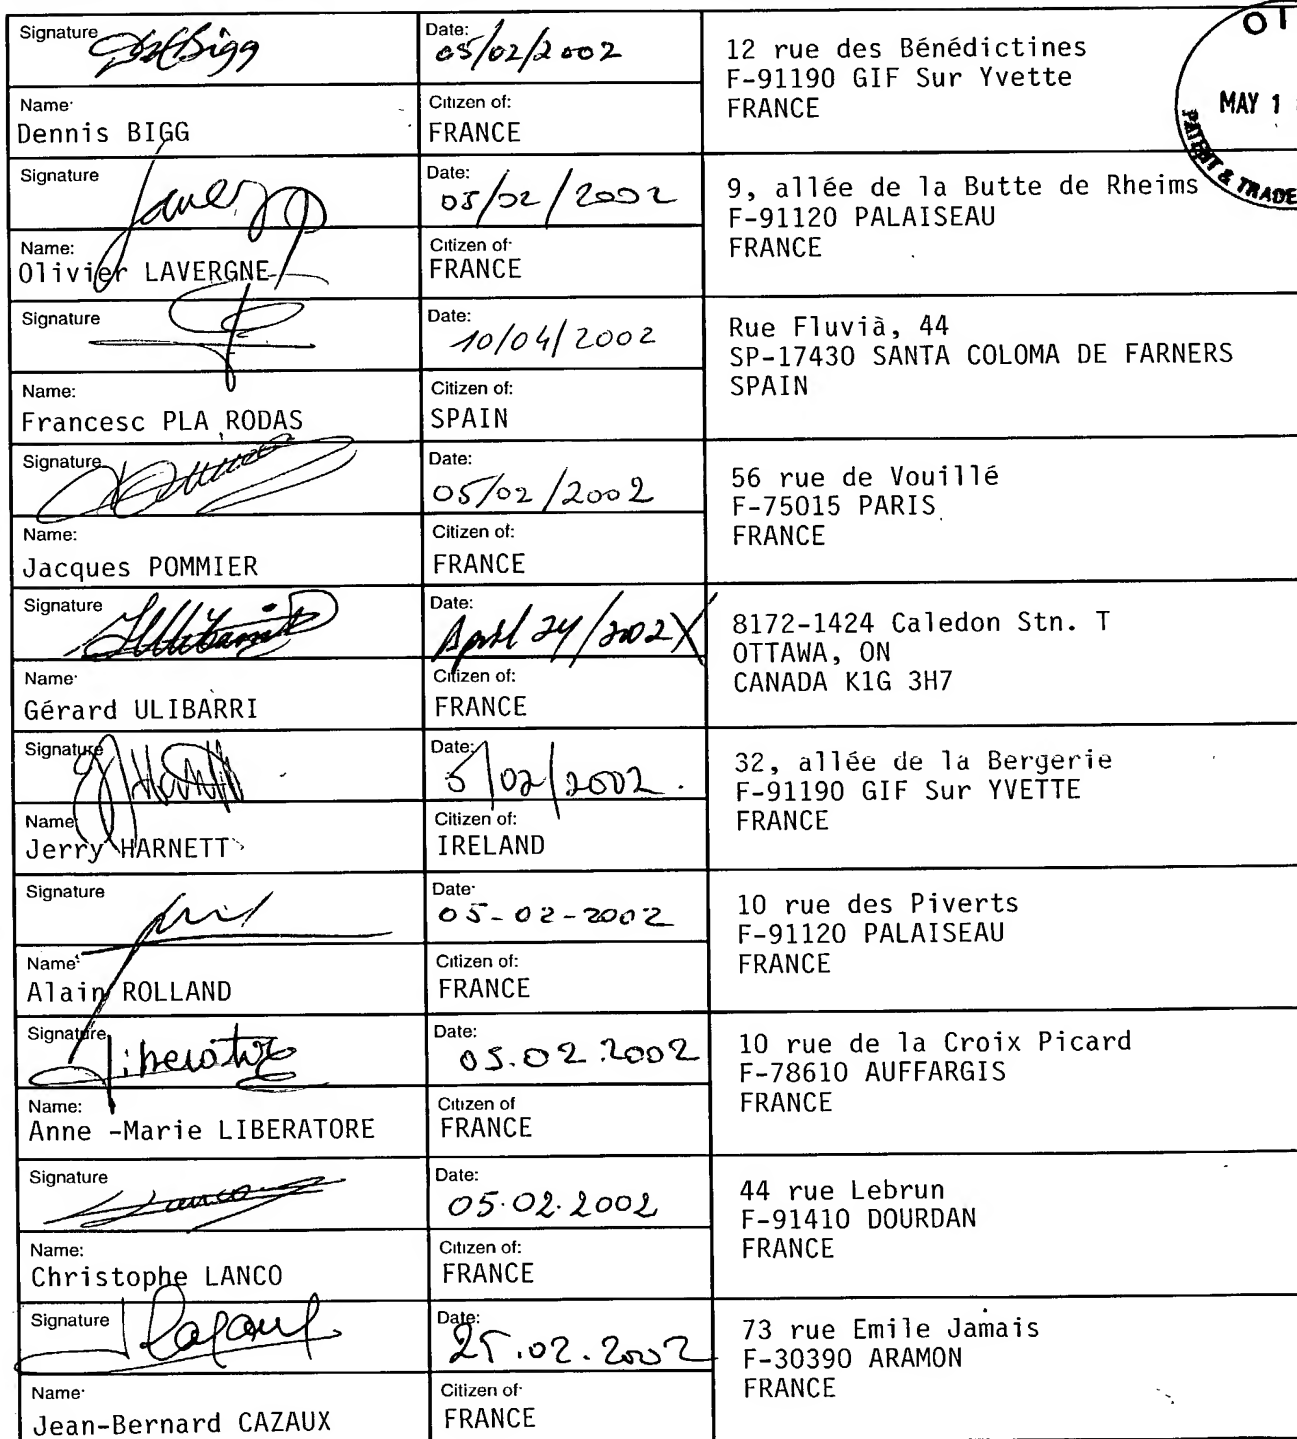 Signature
Date:
05/02/2002
12 rue des Bénédictines
F-91190 GIF Sur Yvette
FRANCE
Name:
Dennis BIGG
Citizen of:
FRANCE
MAY 1
PATENT & TRADE
Signature
Date:
05/02/2002
9, allée de la Butte de Rheims
F-91120 PALAISEAU
FRANCE
Name:
Olivier LAVERGNE
Citizen of:
FRANCE
Signature
Date:
10/04/2002
Rue Fluvià, 44
SP-17430 SANTA COLOMA DE FARNERS
SPAIN
Name:
Francesc PLA RODAS
Citizen of:
SPAIN
Signature
Date:
05/02/2002
56 rue de Vouillé
F-75015 PARIS
FRANCE
Name:
Jacques POMMIER
Citizen of:
FRANCE
Signature
Date:
April 24/2002
8172-1424 Caledon Stn. T
OTTAWA, ON
CANADA K1G 3H7
Name:
Gérard ULIBARRI
Citizen of:
FRANCE
Signature
Date:
5/02/2002.
32, allée de la Bergerie
F-91190 GIF Sur YVETTE
FRANCE
Name
Jerry HARNETT
Citizen of:
IRELAND
Signature
Date:
05-02-2002
10 rue des Piverts
F-91120 PALAISEAU
FRANCE
Name:
Alain ROLLAND
Citizen of:
FRANCE
Signature
Date:
05.02.2002
10 rue de la Croix Picard
F-78610 AUFFARGIS
FRANCE
Name:
Anne -Marie LIBERATORE
Citizen of
FRANCE
Signature
Date:
05.02.2002
44 rue Lebrun
F-91410 DOURDAN
FRANCE
Name:
Christophe LANCO
Citizen of:
FRANCE
Signature
Date:
25.02.2002
73 rue Emile Jamais
F-30390 ARAMON
FRANCE
Name:
Jean-Bernard CAZAUX
Citizen of:
FRANCE